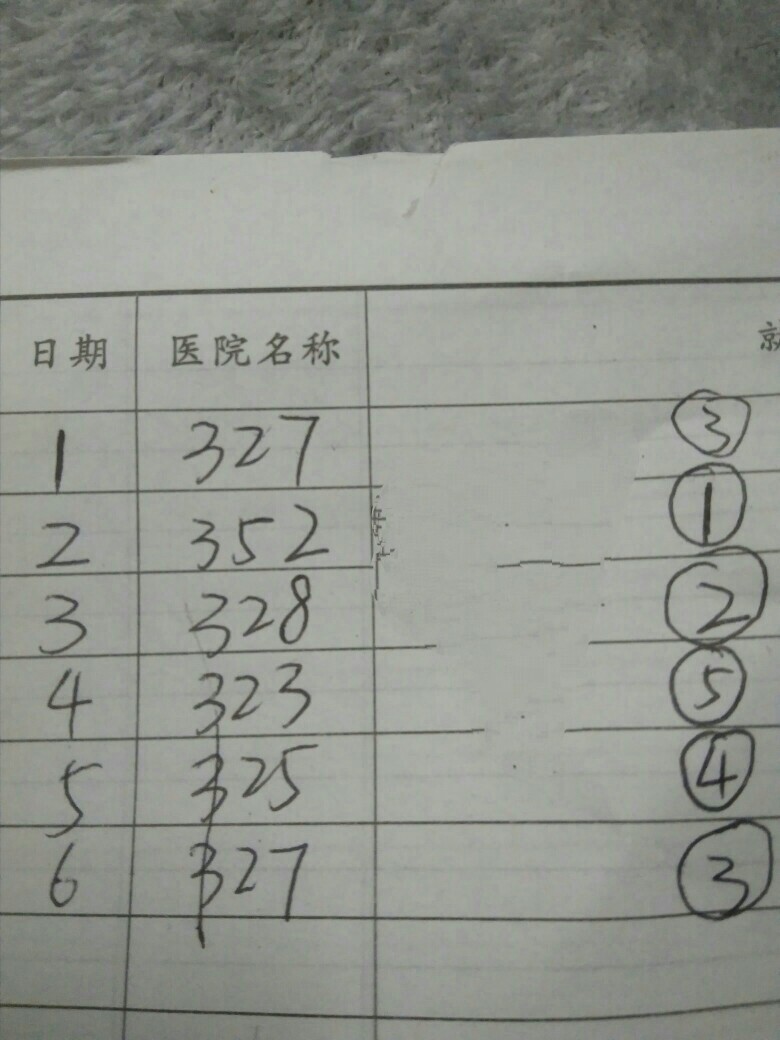 日期 医院名称 就
1 327 ③
2 352 ①
3 328 ②
4 323 ⑤
5 325 ④
6 327 ③